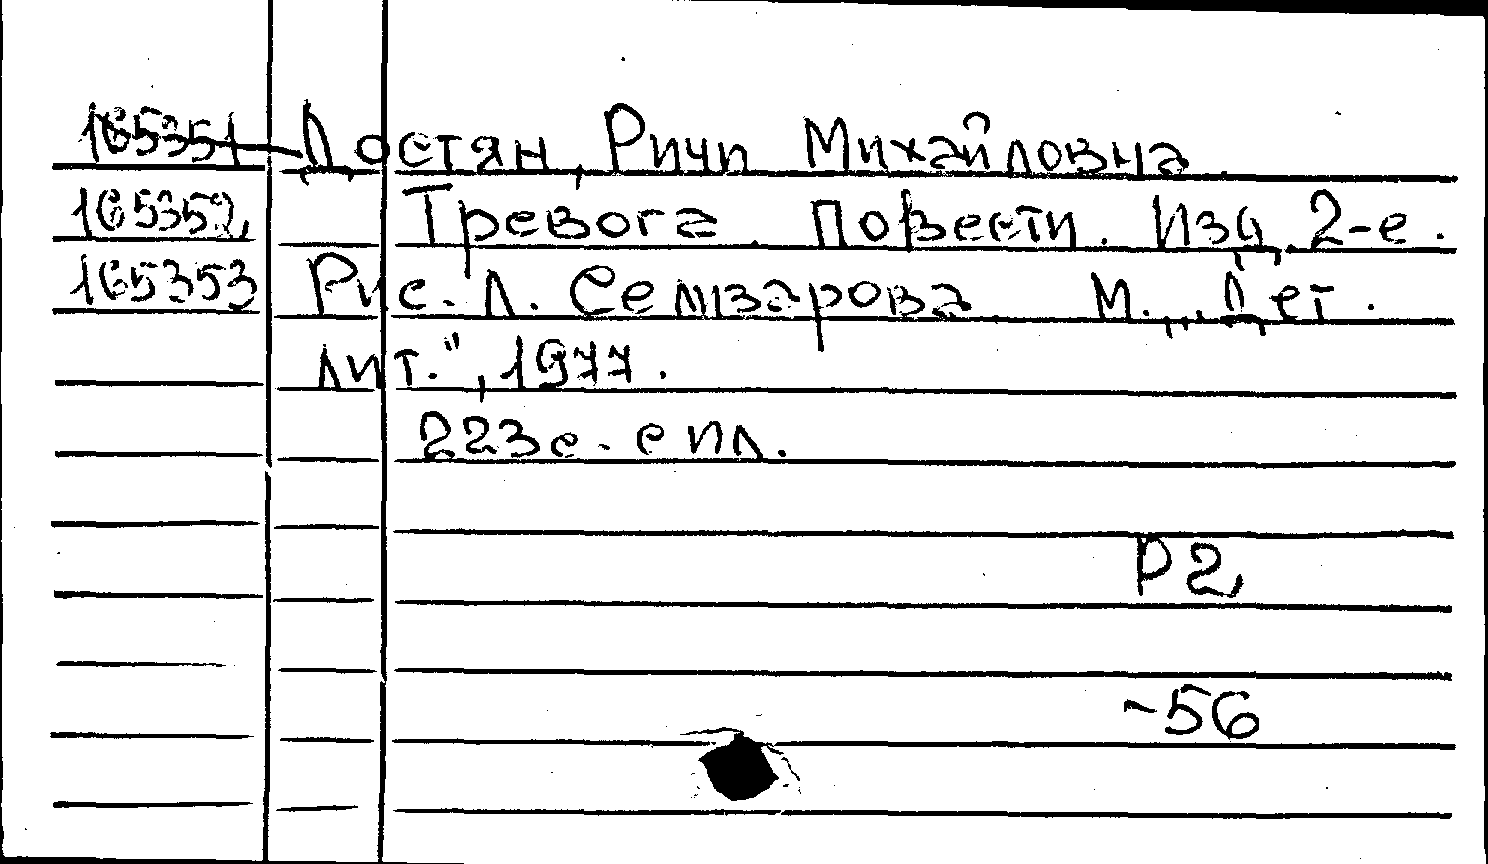 165351 Достян, Ричи Михайловна.
165352, Тревога. Повести. Изд. 2-е.
165353 Рис. Л. Селизарова. М., „Дет.
лит.", 1977.
223с. с ил.
Р2
-56